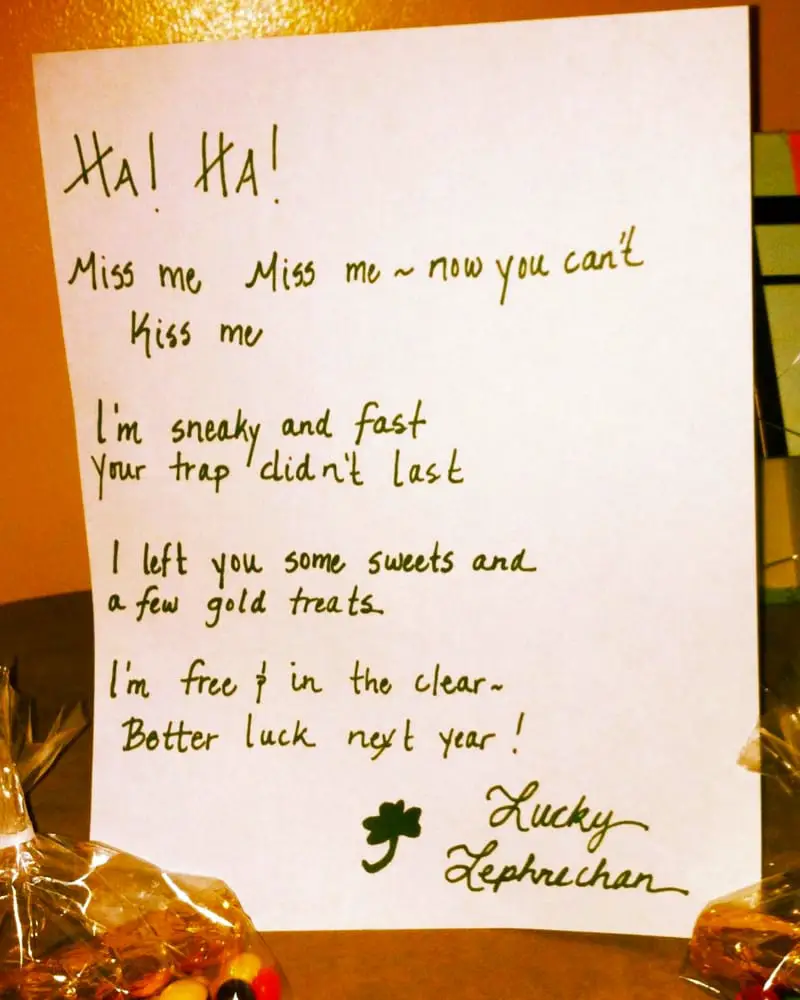 HA! HA!
Miss me Miss me ~ now you can't
Kiss me
I'm sneaky and fast
your trap didn't last
I left you some sweets and
a few gold treats
I'm free & in the clear~
Better luck next year!
Lucky
Lephrechan